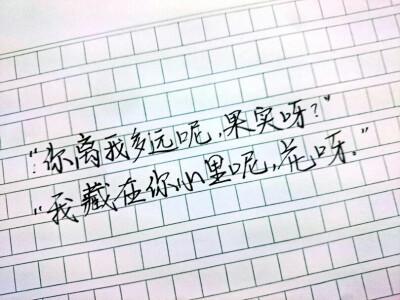 “你离我多远呢，果实呀？”
“我藏在你心里呢，花呀。”